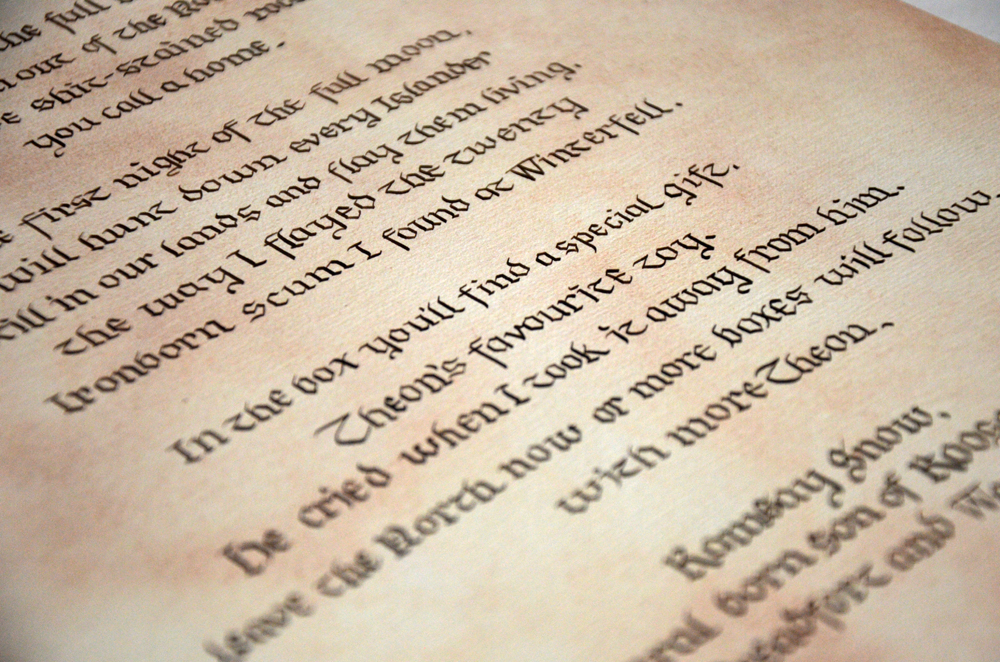 the full
out of the No
shit-stained
you call a home.
first night of the full moon,
will hunt down every Islander
in our lands and flay them living.
the way I flayed the twenty
Ironborn scum I found at Winterfell.
In the box you'll find a special gift.
Theon's favourite toy.
He cried when I took it away from him.
leave the North now or more boxes will follow.
with more Theon.
Ramsay Snow,
born son of Roos
and